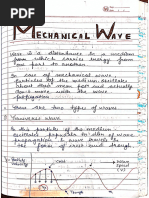 MECHANICAL WAVE
Wave is a disturbance in a medium
from which carries energy from
one part to another.
In case of mechanical wave
particles of the medium oscillate
about their mean post and actually
don't move with wave
propagation.
There are two types of waves
Transverse wave
In the particle of the medium
oscillate perpendicular to dirn of wave
propagation & wave travels in
the form of crest and trough
Particle
Velocity
Crest
Wave
Speed
(V)
Trough